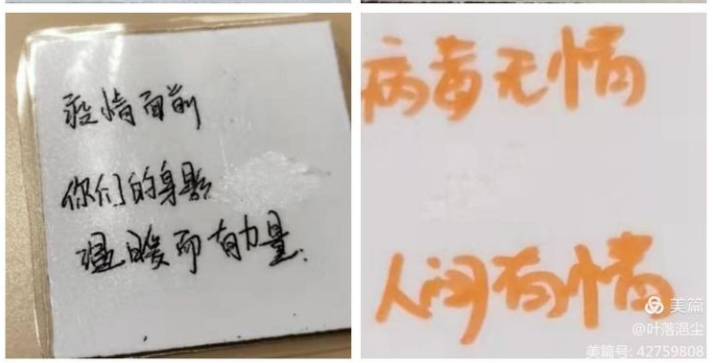 疫情面前
你们的身影
温暖而有力量.
病毒无情
人间有情
美篇
@叶落浥尘
美篇号: 42759808